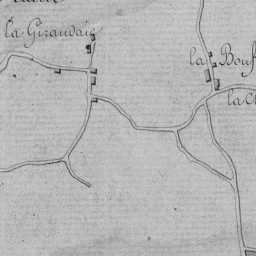 la Giraudais
la Bouf
la Cl